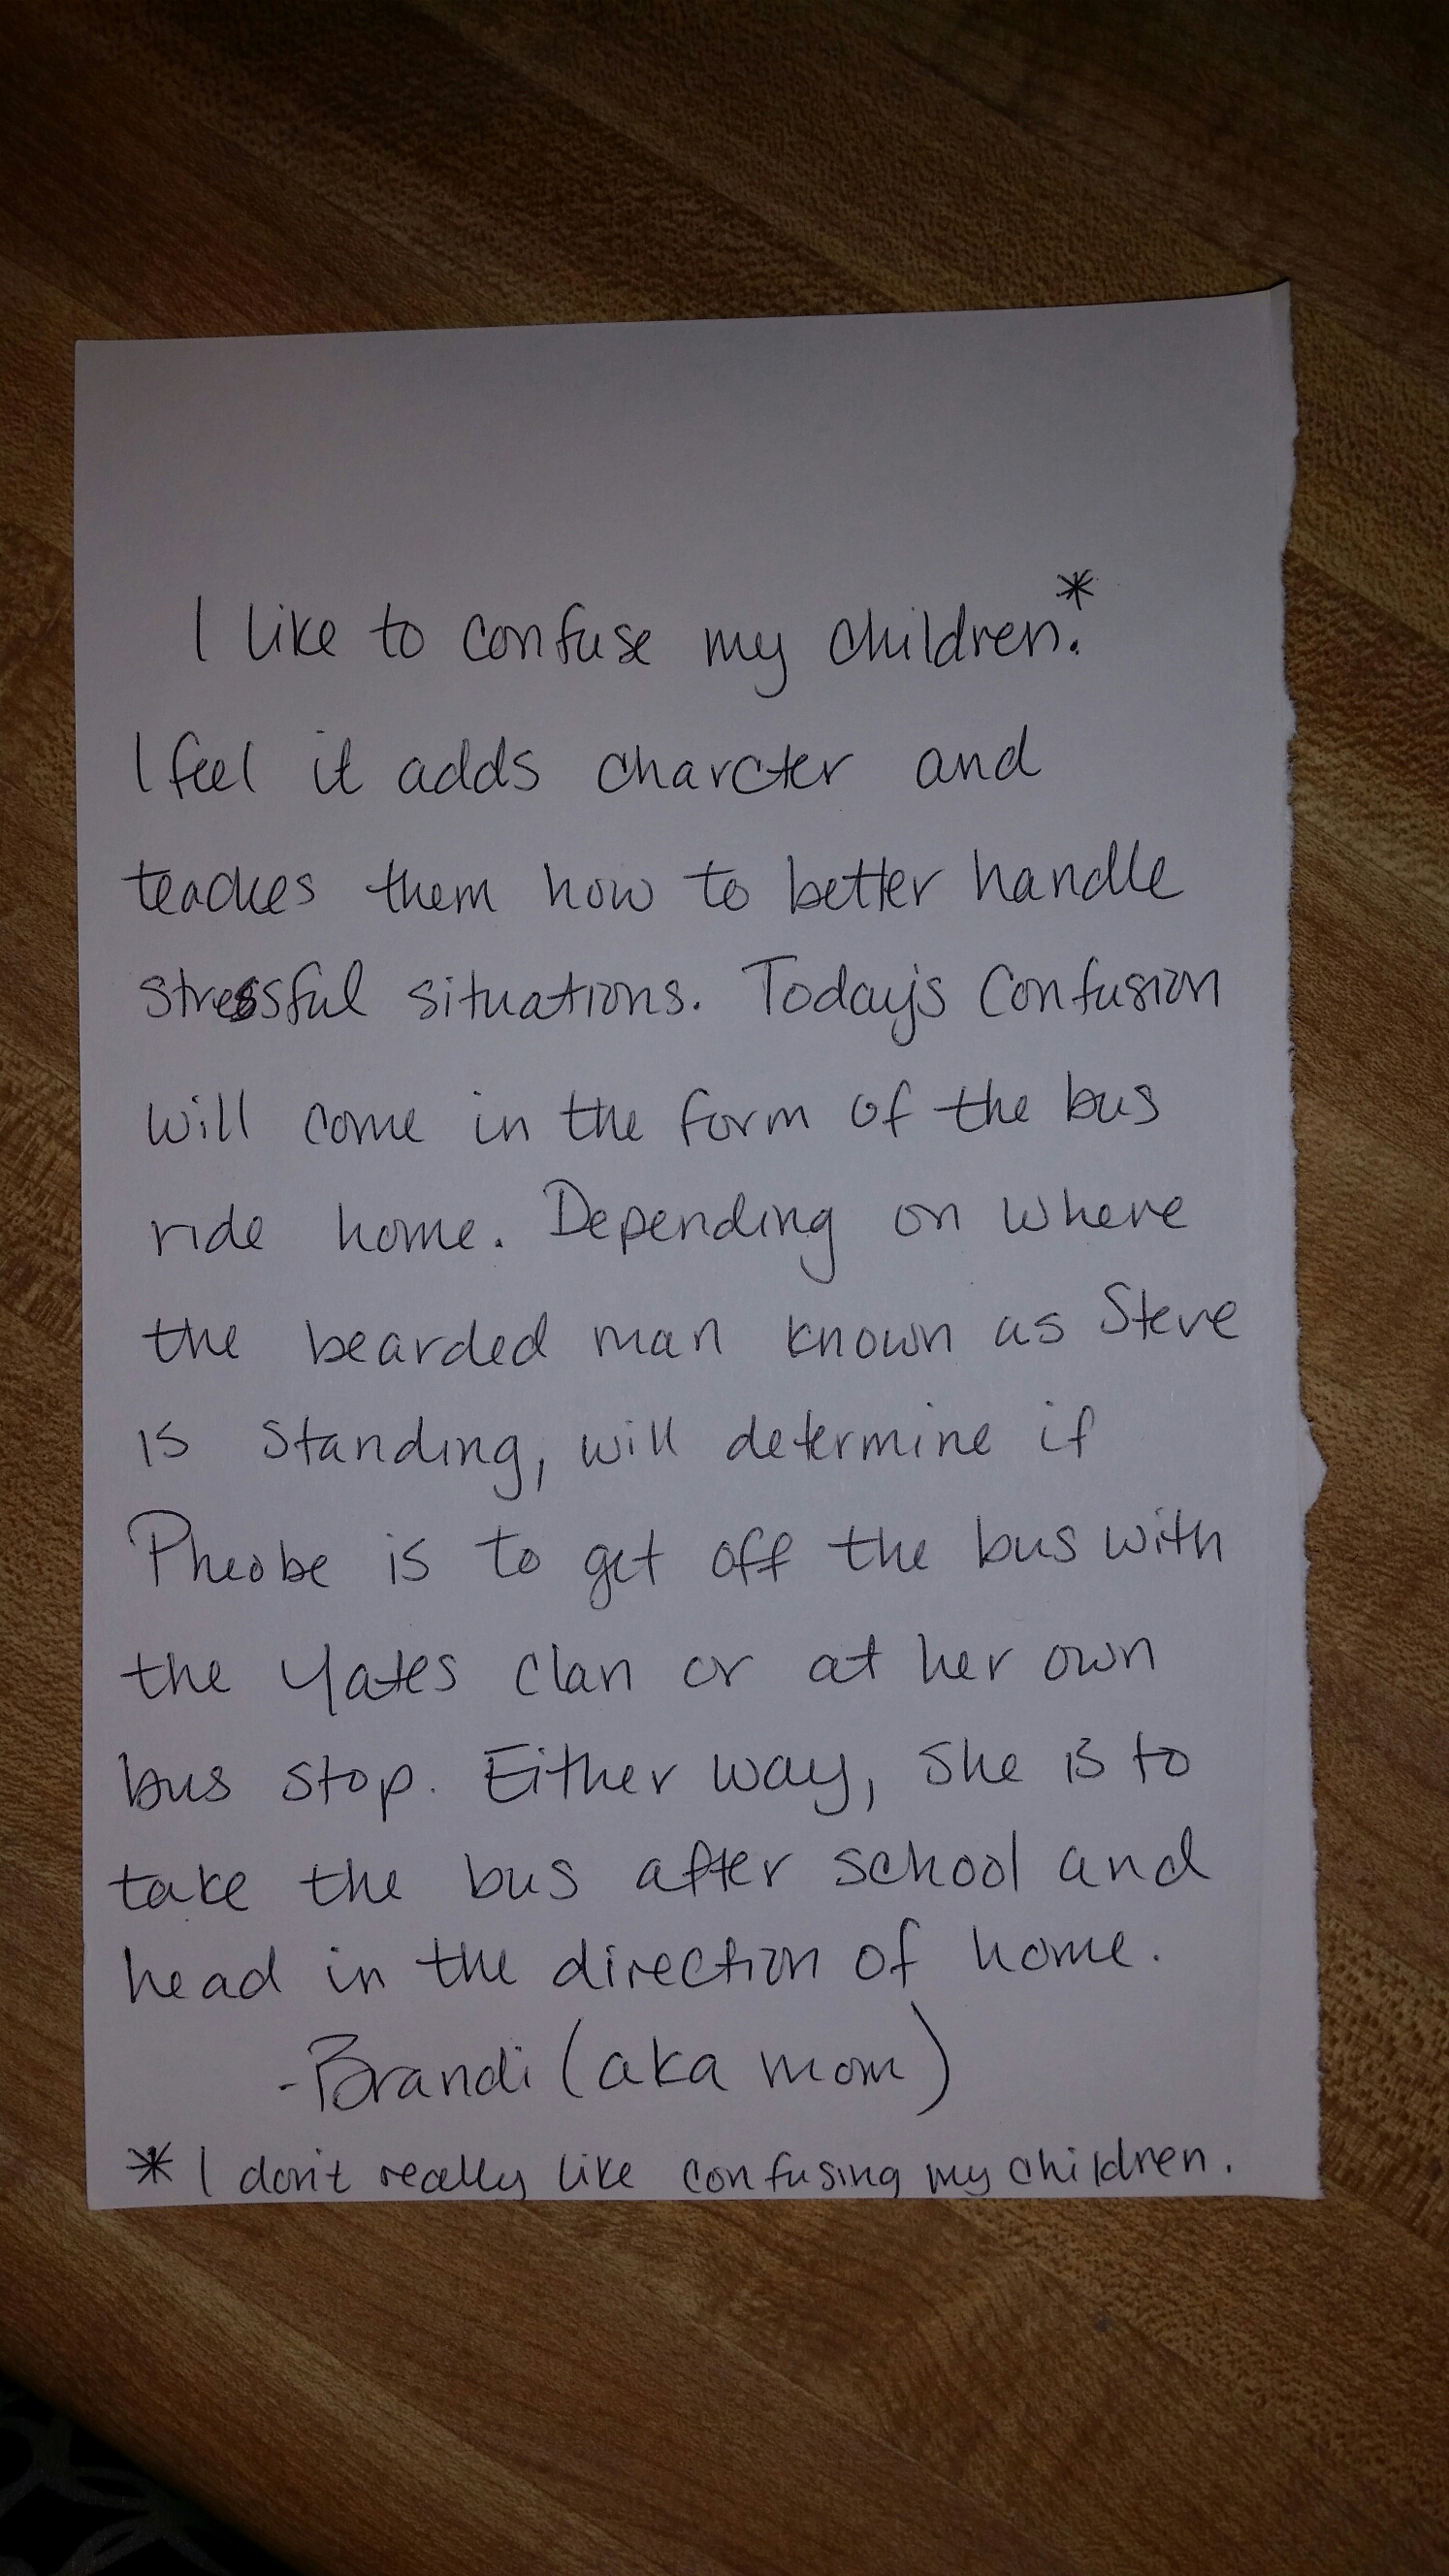 I like to confuse my children.*
I feel it adds charcter and
teaches them how to better handle
stressful situations. Today's confusion
will come in the form of the bus
ride home. Depending on where
the bearded man known as Steve
is standing, will determine if
Pheobe is to get off the bus with
the Yates clan or at her own
bus stop. Either way, she is to
take the bus after school and
head in the direction of home.
-Brandi (aka mom)
* I don't really like confusing my children.